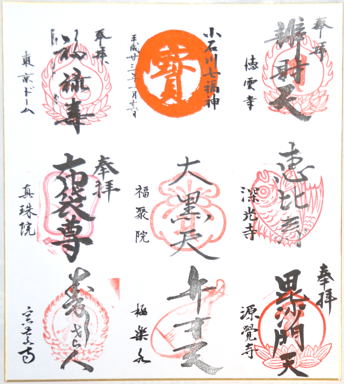 奉拝
辨財天
徳雲寺
小石川七福神
寳
平成廿三年一月十六日
奉拝
福禄寿
東京ドーム
恵比寿
深光寺
大黒天
福聚院
奉拝
布袋尊
真珠院
奉拝
毘沙門天
源覺寺
弁才天
極楽水
寿老人
宗慶寺